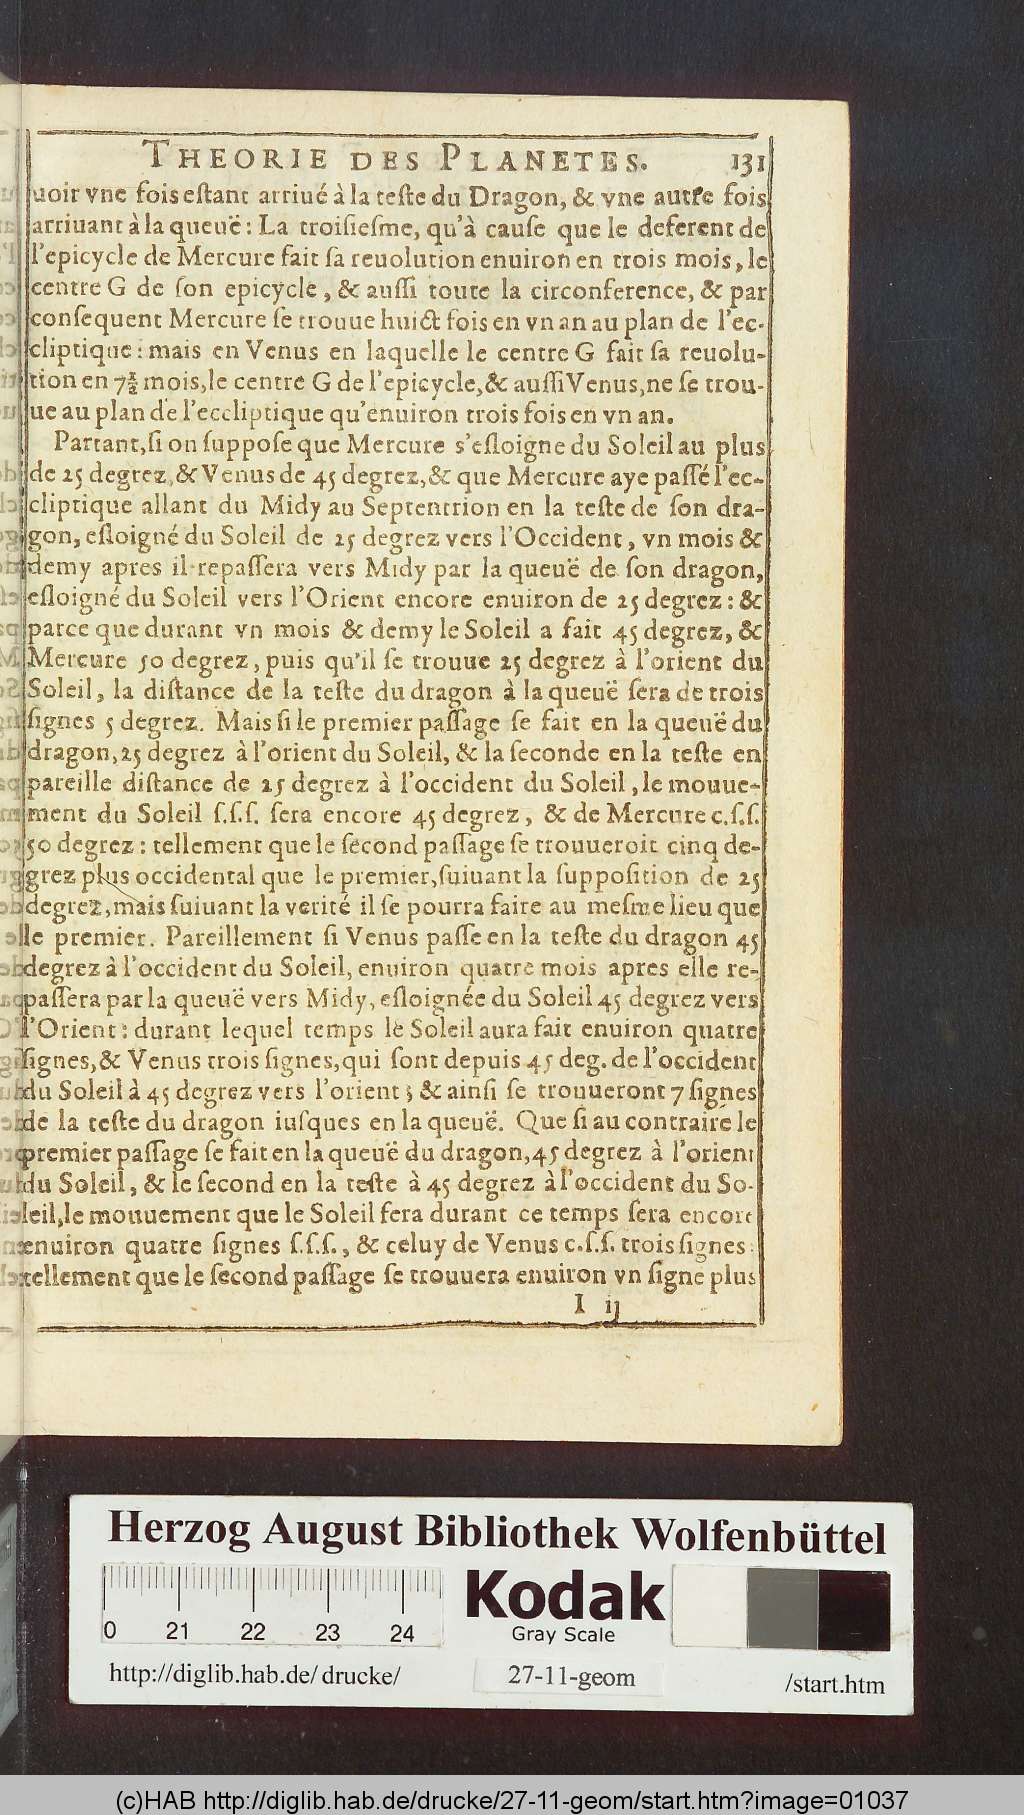 THEORIE DES PLANETES. 131
uoir vne fois eſtant arriué à la teſte du Dragon, & vne autre fois
arriuant à la queuë : La troiſieſme, qu'à cauſe que le deferent de
l'epicycle de Mercure fait ſa reuolution enuiron en trois mois, le
centre G de ſon epicycle, & auſſi toute la circonference, & par
conſequent Mercure ſe trouue huict fois en vn an au plan de l'ec-
cliptique : mais en Venus en laquelle le centre G fait ſa reuolu-
tion en 7½ mois, le centre G de l'epicycle, & auſſi Venus, ne ſe trou-
ue au plan de l'eccliptique qu'enuiron trois fois en vn an.
Partant, ſi on ſuppoſe que Mercure s'eſloigne du Soleil au plus
de 25 degrez, & Venus de 45 degrez, & que Mercure aye paſſé l'ec-
cliptique allant du Midy au Septentrion en la teſte de ſon dra-
gon, eſloigné du Soleil de 25 degrez vers l'Occident, vn mois &
demy apres il repaſſera vers Midy par la queuë de ſon dragon,
eſloigné du Soleil vers l'Orient encore enuiron de 25 degrez : &
parce que durant vn mois & demy le Soleil a fait 45 degrez, &
Mercure 50 degrez, puis qu'il ſe trouue 25 degrez à l'orient du
Soleil, la diſtance de la teſte du dragon à la queuë ſera de trois
ſignes 5 degrez. Mais ſi le premier paſſage ſe fait en la queuë du
dragon, 25 degrez à l'orient du Soleil, & la ſeconde en la teſte en
pareille diſtance de 25 degrez à l'occident du Soleil, le mouue-
ment du Soleil ſ.ſ.ſ. ſera encore 45 degrez, & de Mercure c.ſ.ſ.
50 degrez : tellement que le ſecond paſſage ſe trouueroit cinq de-
grez plus occidental que le premier, ſuiuant la ſuppoſition de 25
degrez, mais ſuiuant la verité il ſe pourra faire au meſme lieu que
le premier. Pareillement ſi Venus paſſe en la teſte du dragon 45
degrez à l'occident du Soleil, enuiron quatre mois apres elle re-
paſſera par la queuë vers Midy, eſloignée du Soleil 45 degrez vers
l'Orient : durant lequel temps le Soleil aura fait enuiron quatre
ſignes, & Venus trois ſignes, qui ſont depuis 45 deg. de l'occident
du Soleil à 45 degrez vers l'orient ; & ainſi ſe trouueront 7 ſignes
de la teſte du dragon iuſques en la queuë. Que ſi au contraire le
premier paſſage ſe fait en la queuë du dragon, 45 degrez à l'orient
du Soleil, & le ſecond en la teſte à 45 degrez à l'occident du So-
leil, le mouuement que le Soleil fera durant ce temps ſera encore
enuiron quatre ſignes ſ.ſ.ſ., & celuy de Venus c.ſ.ſ. trois ſignes :
tellement que le ſecond paſſage ſe trouuera enuiron vn ſigne plus
I ij
Herzog August Bibliothek Wolfenbüttel
0 21 22 23 24
Kodak
Gray Scale
http://diglib.hab.de/drucke/ 27-11-geom /start.htm
(c)HAB http://diglib.hab.de/drucke/27-11-geom/start.htm?image=01037